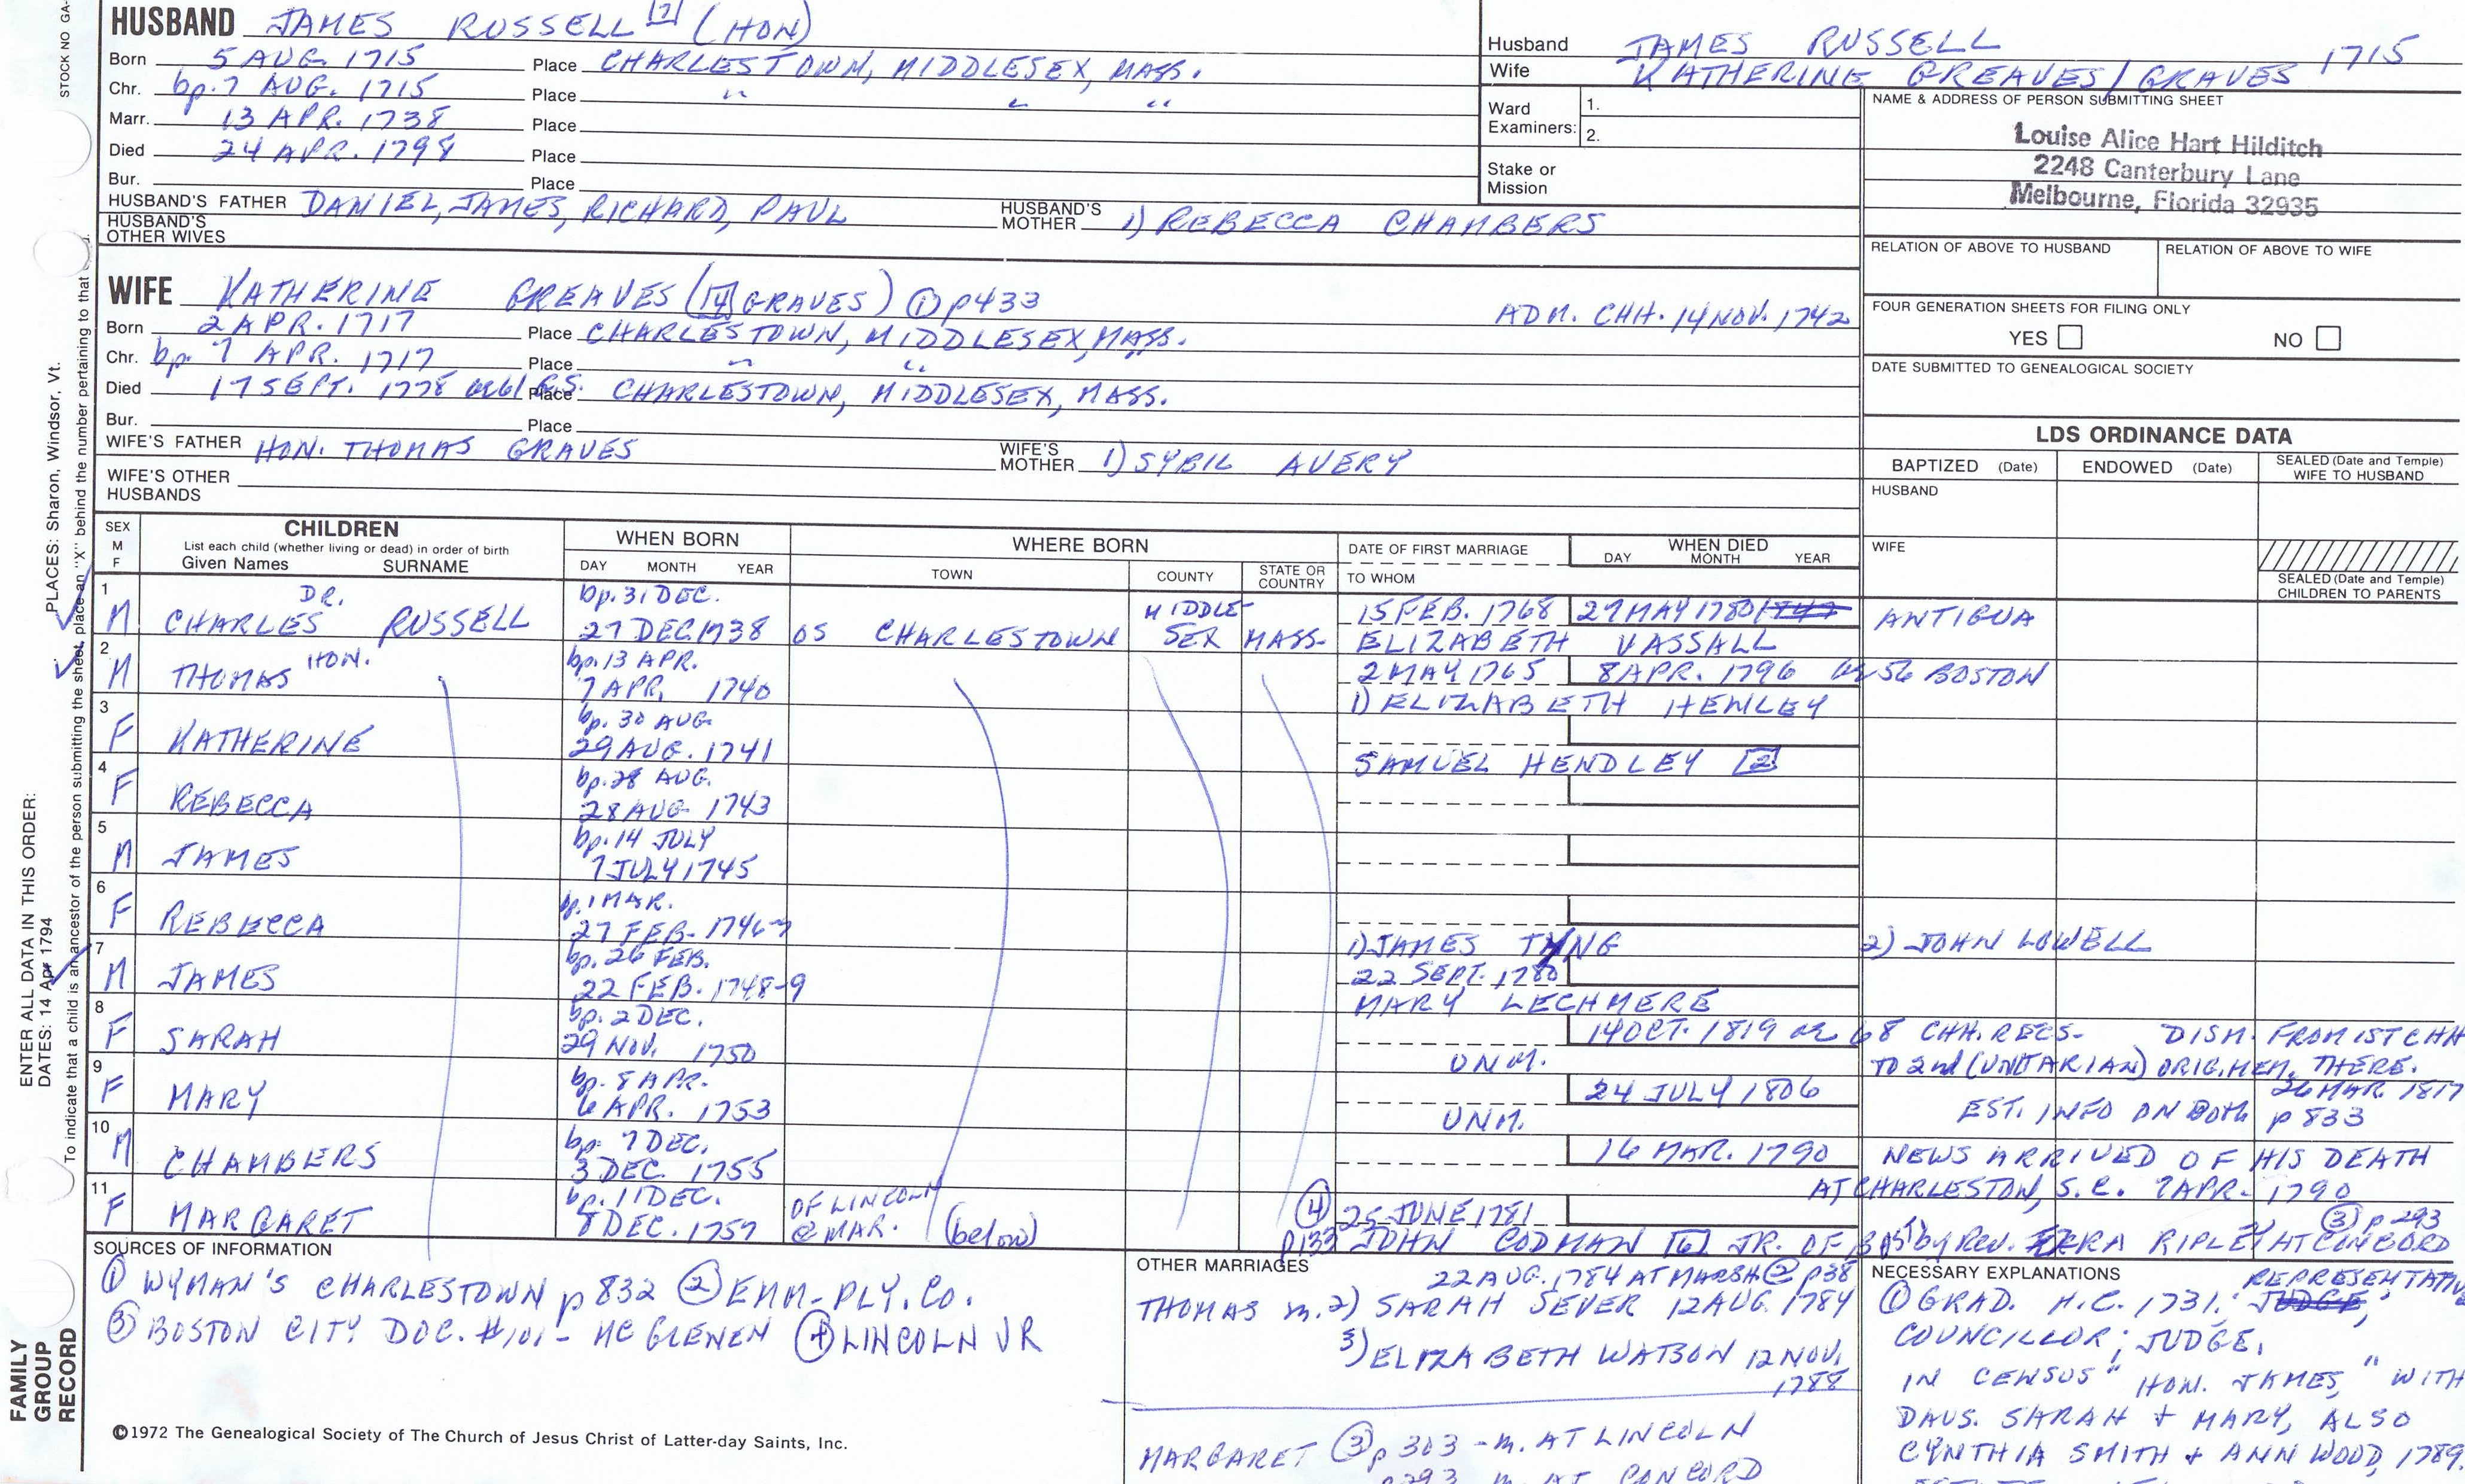 HUSBAND JAMES RUSSELL [7] (HON)
Born 5 AUG. 1715 Place CHARLESTOWN, MIDDLESEX, MASS.
Chr. bp. 7 AUG. 1715 Place " " "
Marr. 13 APR. 1738 Place
Died 24 APR. 1798 Place
Bur. Place
HUSBAND'S FATHER DANIEL, JAMES, RICHARD, PAUL HUSBAND'S MOTHER 1) REBECCA CHAMBERS
HUSBAND'S OTHER WIVES
WIFE KATHERINE GREAVES ([14] GRAVES) ① p433
ADM. CHH. 14 NOV. 1742
Born 2 APR. 1717 Place CHARLESTOWN, MIDDLESEX, MASS.
Chr. bp. 7 APR. 1717 Place " "
Died 17 SEPT. 1778 ae61 G.S. Place CHARLESTOWN, MIDDLESEX, MASS.
Bur. Place
WIFE'S FATHER HON. THOMAS GRAVES WIFE'S MOTHER 1) SYBIL AVERY
WIFE'S OTHER HUSBANDS
Husband JAMES RUSSELL 1715
Wife KATHERINE GREAVES/GRAVES
Ward Examiners: 1.
2.
Stake or Mission
NAME & ADDRESS OF PERSON SUBMITTING SHEET
Louise Alice Hart Hilditch
2248 Canterbury Lane
Melbourne, Florida 32935
RELATION OF ABOVE TO HUSBAND RELATION OF ABOVE TO WIFE
FOUR GENERATION SHEETS FOR FILING ONLY
YES NO
DATE SUBMITTED TO GENEALOGICAL SOCIETY
LDS ORDINANCE DATA
BAPTIZED (Date) ENDOWED (Date) SEALED (Date and Temple) WIFE TO HUSBAND
HUSBAND
WIFE
SEALED (Date and Temple) CHILDREN TO PARENTS
SEX M F
CHILDREN
List each child (whether living or dead) in order of birth
Given Names SURNAME
WHEN BORN
DAY MONTH YEAR
WHERE BORN
TOWN COUNTY STATE OR COUNTRY
DATE OF FIRST MARRIAGE
TO WHOM
WHEN DIED
DAY MONTH YEAR
1 M DR. CHARLES RUSSELL bp. 31 DEC. 27 DEC. 1738 CHARLESTOWN MIDDLE-SEX MASS. 15 FEB. 1768 27 MAY 1780 ANTIGUA
ELIZABETH VASSALL
2 M THOMAS HON. bp. 13 APR. 7 APR. 1740 2 MAY 1765 8 APR. 1796 ae 56 BOSTON
1) ELIZABETH HENLEY
3 F KATHERINE bp. 30 AUG. 29 AUG. 1741
SAMUEL HENDLEY [2]
4 F REBECCA bp. 28 AUG. 28 AUG. 1743
5 M JAMES bp. 14 JULY 7 JULY 1745
6 F REBECCA bp. 1 MAR. 27 FEB. 1746-7
1) JAMES TYNG 2) JOHN LOWELL
7 M JAMES bp. 26 FEB. 22 FEB. 1748-9 22 SEPT. 1780
MARY LECHMERE
8 F SARAH bp. 2 DEC. 29 NOV. 1750 14 OCT. 1819 ae 68 CHH. RECS- DISM. FROM 1ST CHH
UNM. TO 2nd (UNITARIAN) ORIG. MEM. THERE.
26 MAR. 1817
9 F MARY bp. 8 APR. 6 APR. 1753 24 JULY 1806
UNM. EST. INFO ON BOTH p 833
10 M CHAMBERS bp. 7 DEC. 3 DEC. 1755 16 MAR. 1790 NEWS ARRIVED OF HIS DEATH
AT CHARLESTON, S.C. 7 APR. 1790
11 F MARGARET bp. 11 DEC. 8 DEC. 1757 OF LINCOLN @ MAR. (below) ④ 25 JUNE 1781 ③ p 293
p133 JOHN CODMAN [6] JR. OF BOST by REV. EZRA RIPLEY AT CONCORD
SOURCES OF INFORMATION
① WYMAN'S CHARLESTOWN p 832 ② EMM-PLY. CO.
③ BOSTON CITY DOC. #101- MC GLENEN ④ LINCOLN VR
©1972 The Genealogical Society of The Church of Jesus Christ of Latter-day Saints, Inc.
OTHER MARRIAGES
22 AUG. 1784 AT MARSH ② p38
THOMAS m. 2) SARAH SEVER 12 AUG. 1784
3) ELIZABETH WATSON 12 NOV. 1788
MARGARET ③ p 303 - m. AT LINCOLN
p293 m. AT CONCORD
NECESSARY EXPLANATIONS
① GRAD. H.C. 1731; JUDGE, REPRESENTATIVE
COUNCILLOR; JUDGE.
IN CENSUS "HON. JAMES," WITH
DAUS. SARAH + MARY, ALSO
CYNTHIA SMITH + ANN WOOD, 1789.
STOCK NO GA-
PLACES: Sharon, Windsor, Vt.
ENTER ALL DATA IN THIS ORDER:
DATES: 14 Apr 1794
To indicate that a child is an ancestor of the person submitting the sheet, place an "X" behind the number pertaining to that
FAMILY GROUP RECORD